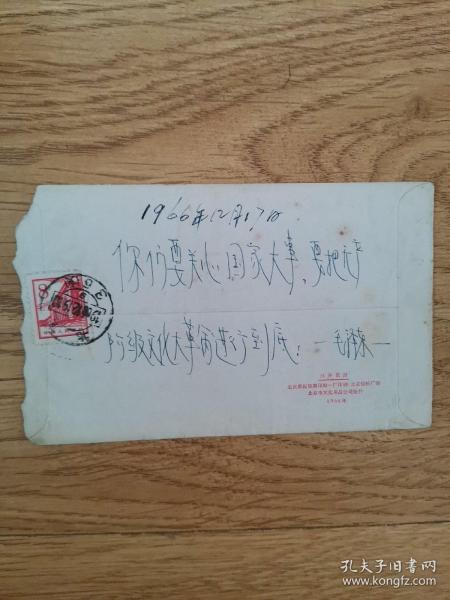 1966年12月17日.
你们要关心国家大事、要把无产
阶级文化大革命进行到底！—毛泽东—
8
北京市文化用品公司发行
1966年
孔夫子旧书网
www.kongfz.com